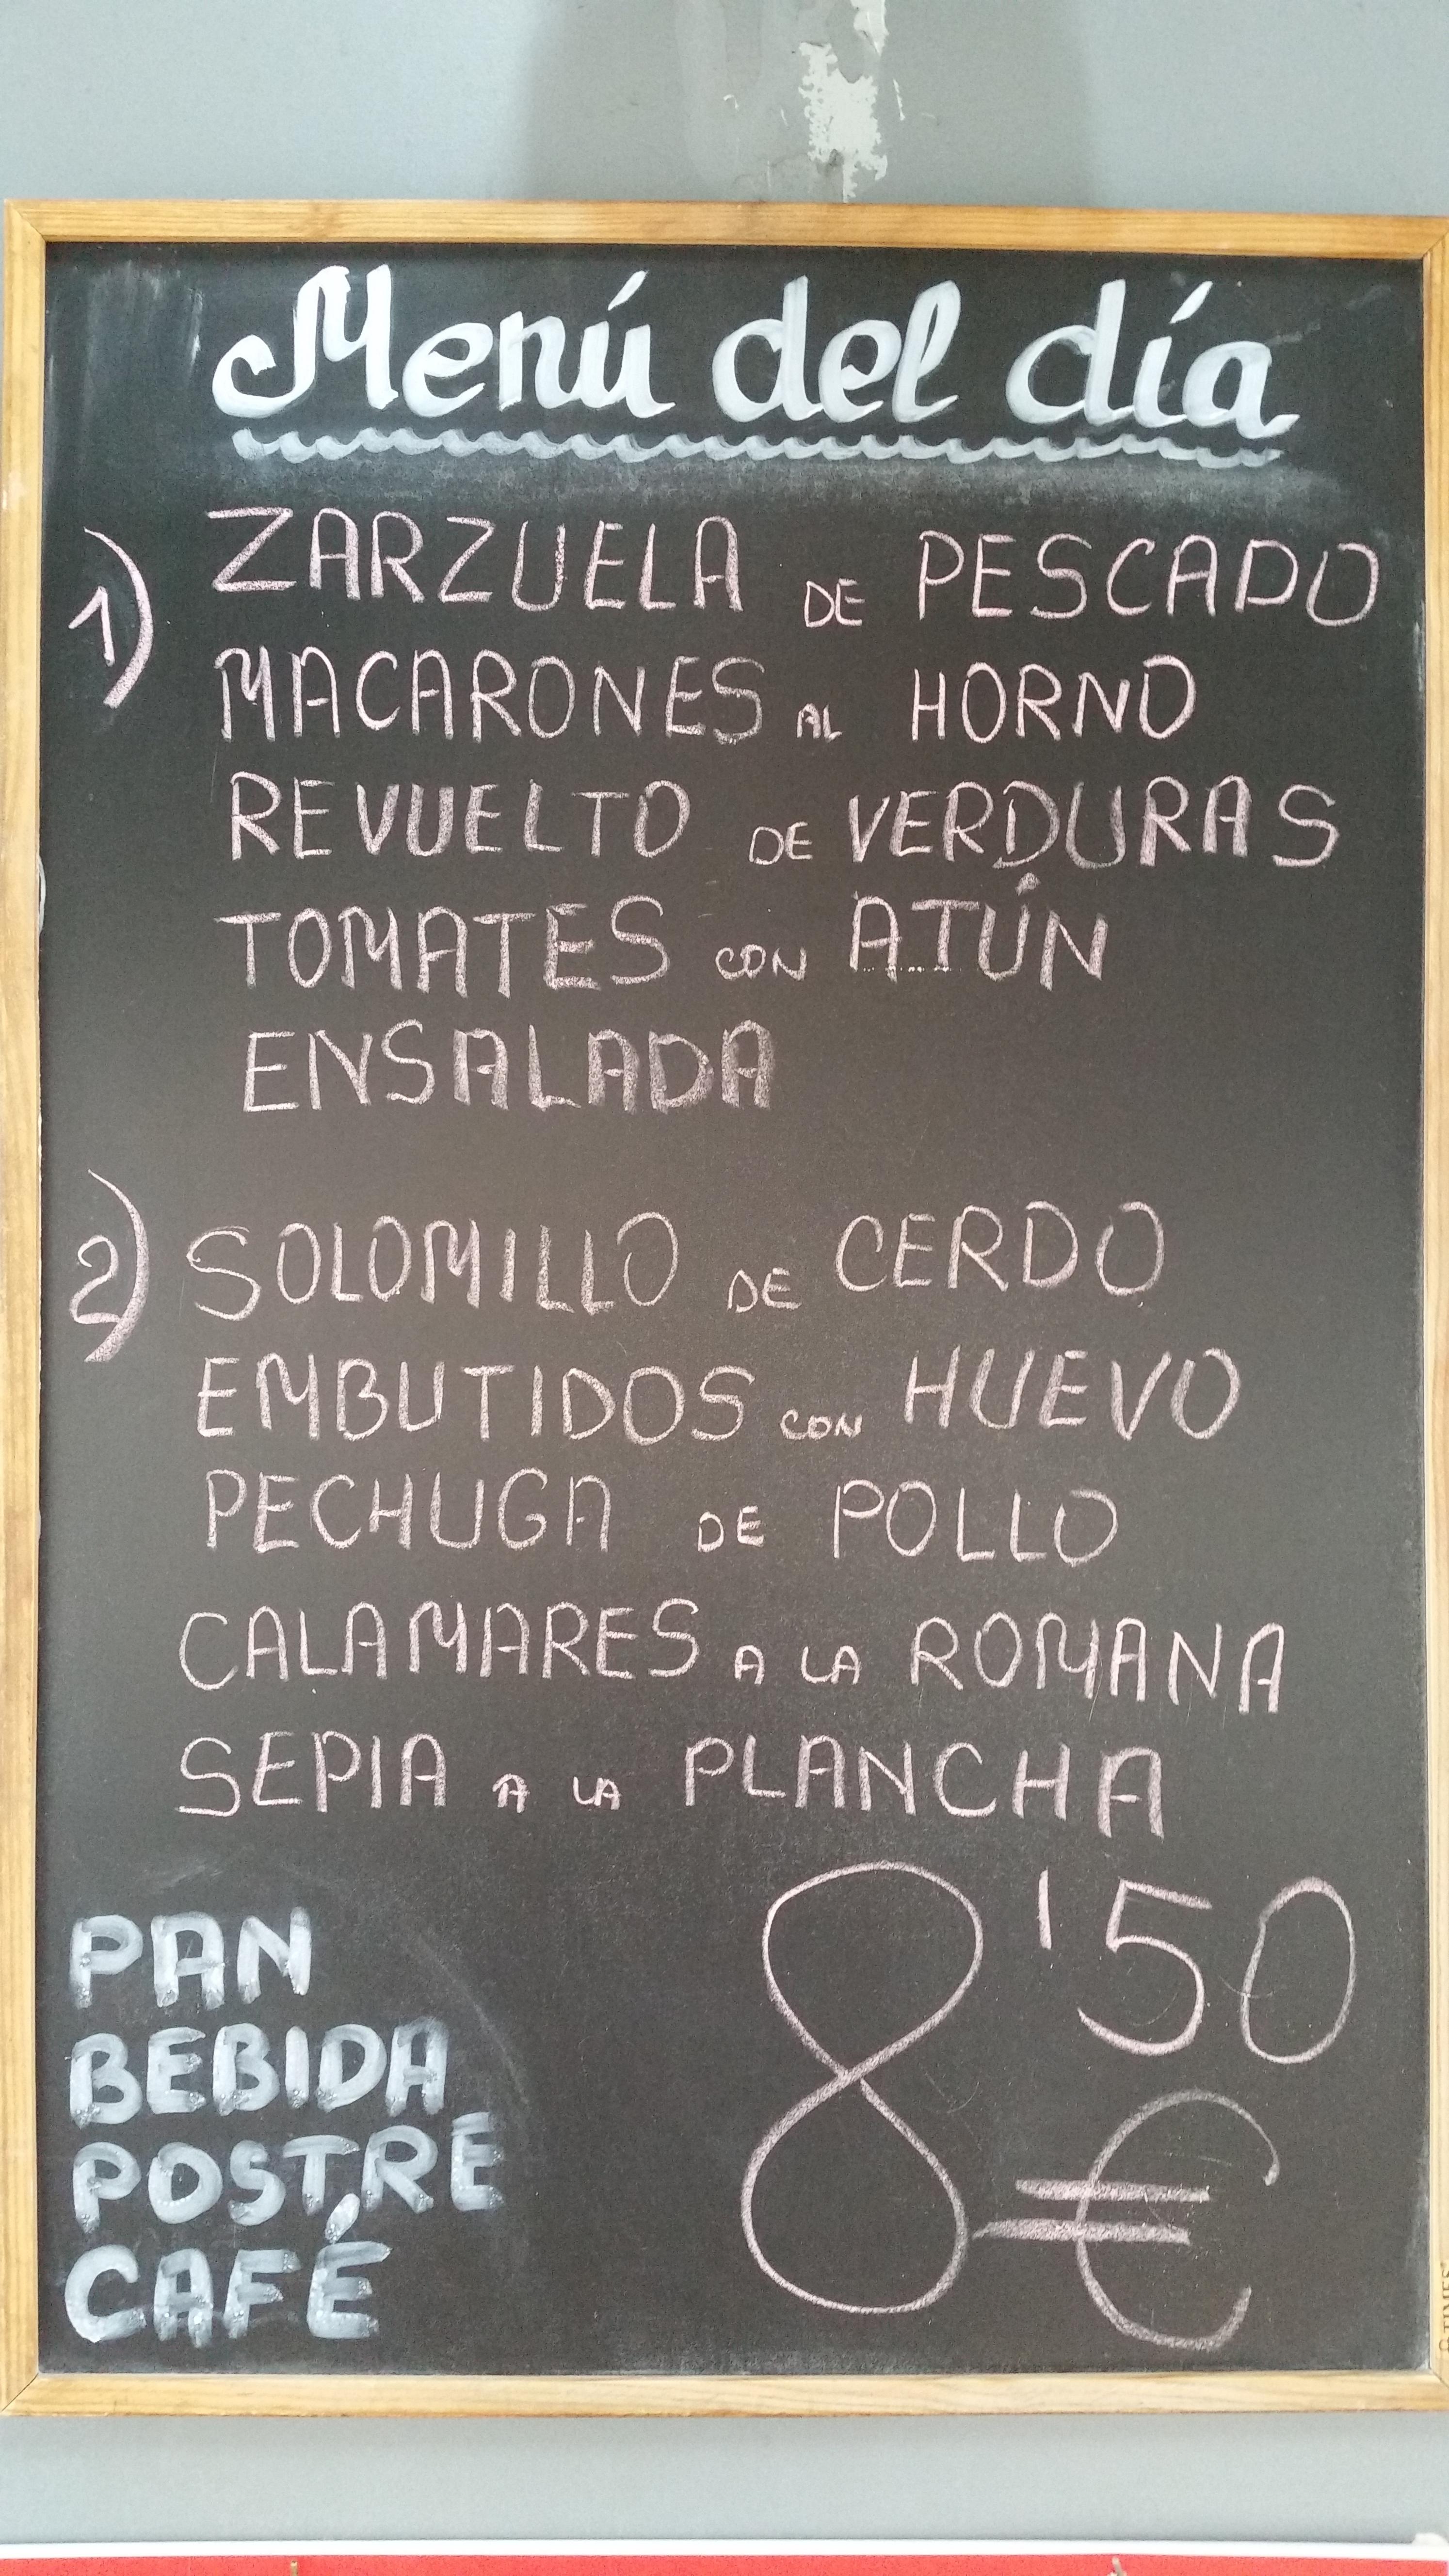 Menú del día
1) ZARZUELA DE PESCADO
MACARONES AL HORNO
REVUELTO DE VERDURAS
TOMATES CON ATÚN
ENSALADA
2) SOLOMILLO DE CERDO
EMBUTIDOS CON HUEVO
PECHUGA DE POLLO
CALAMARES A LA ROMANA
SEPIA A LA PLANCHA
PAN
BEBIDA
POSTRE
CAFÉ
8'50
€